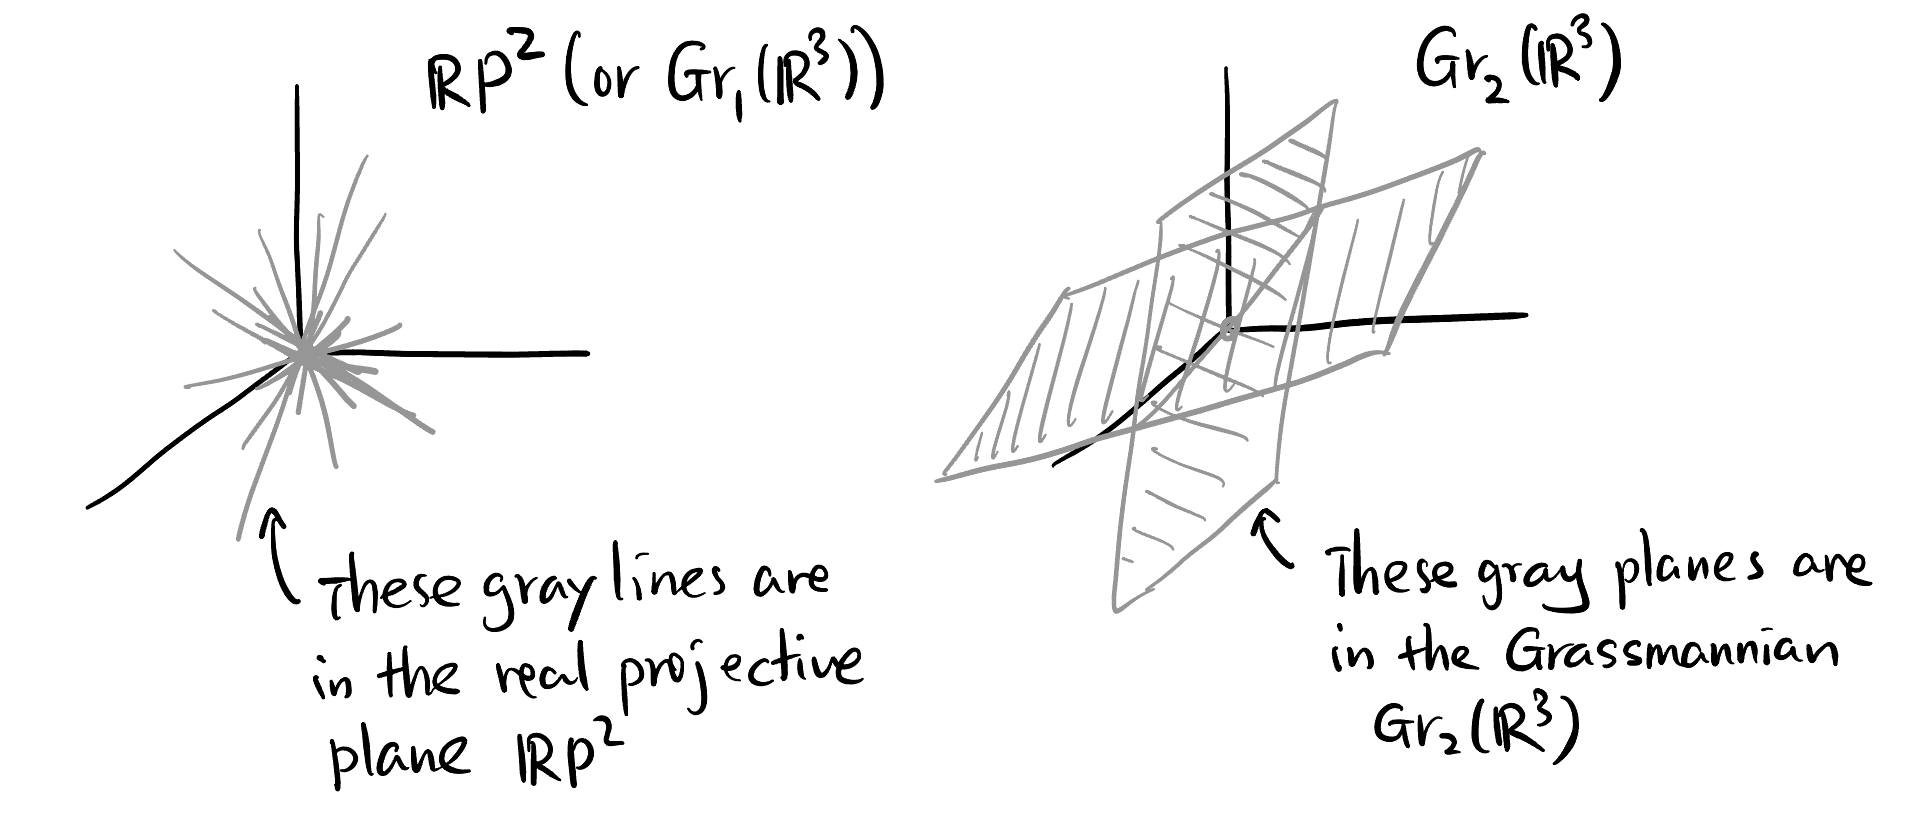 ℝP² (or Gr₁(ℝ³))
These gray lines are
in the real projective
plane ℝP²
Gr₂(ℝ³)
These gray planes are
in the Grassmannian
Gr₂(ℝ³)